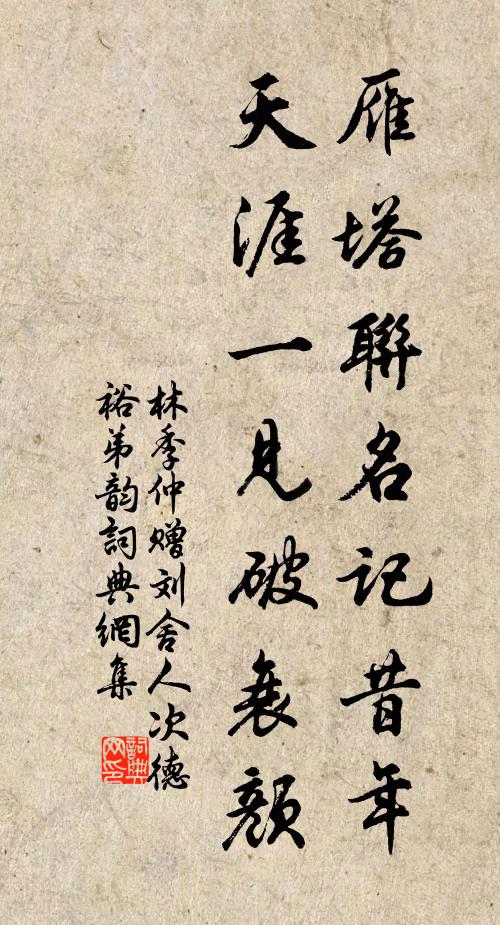 雁塔聯名記昔年
天涯一見破衰顏
林季仲赠刘舍人次德
裕弟韵詞典網集
詞典网印